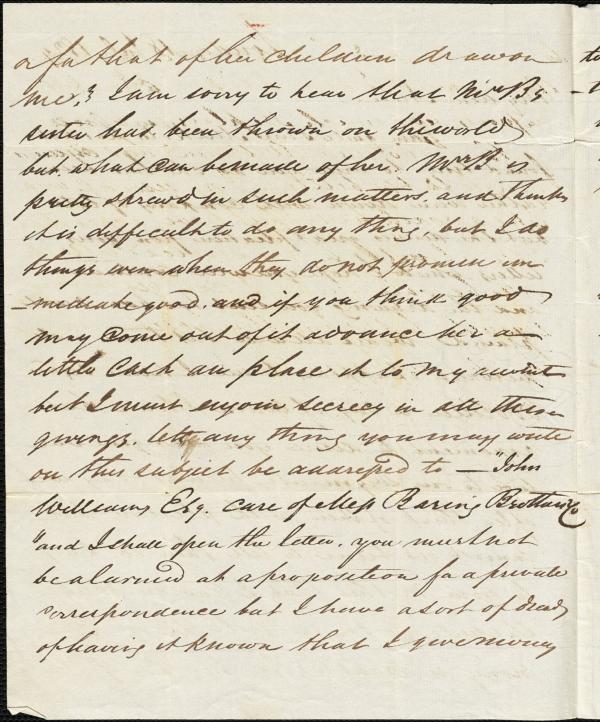 or for that of her children draw on
me." I am sorry to hear that Mrs. B's
sister has been thrown on the world
but what can be made of her. Mrs. B is
pretty shrewd in such matters, and thinks
it is difficult to do any thing, but I do
things even when they do not promise im
-mediate good. and if you think good
may come out of it advance her a
little cash an place it to my account
but I must enjoin secrecy in all these
givings. let any thing you may write
on this subject be addressed to — "John
Williams Esq. care of Mess Baring Brothers & Co
"and I shall open the letter. you must not
be alarmed at a proposition for a private
correspondence but I have a sort of dread
of having it known that I give money
to